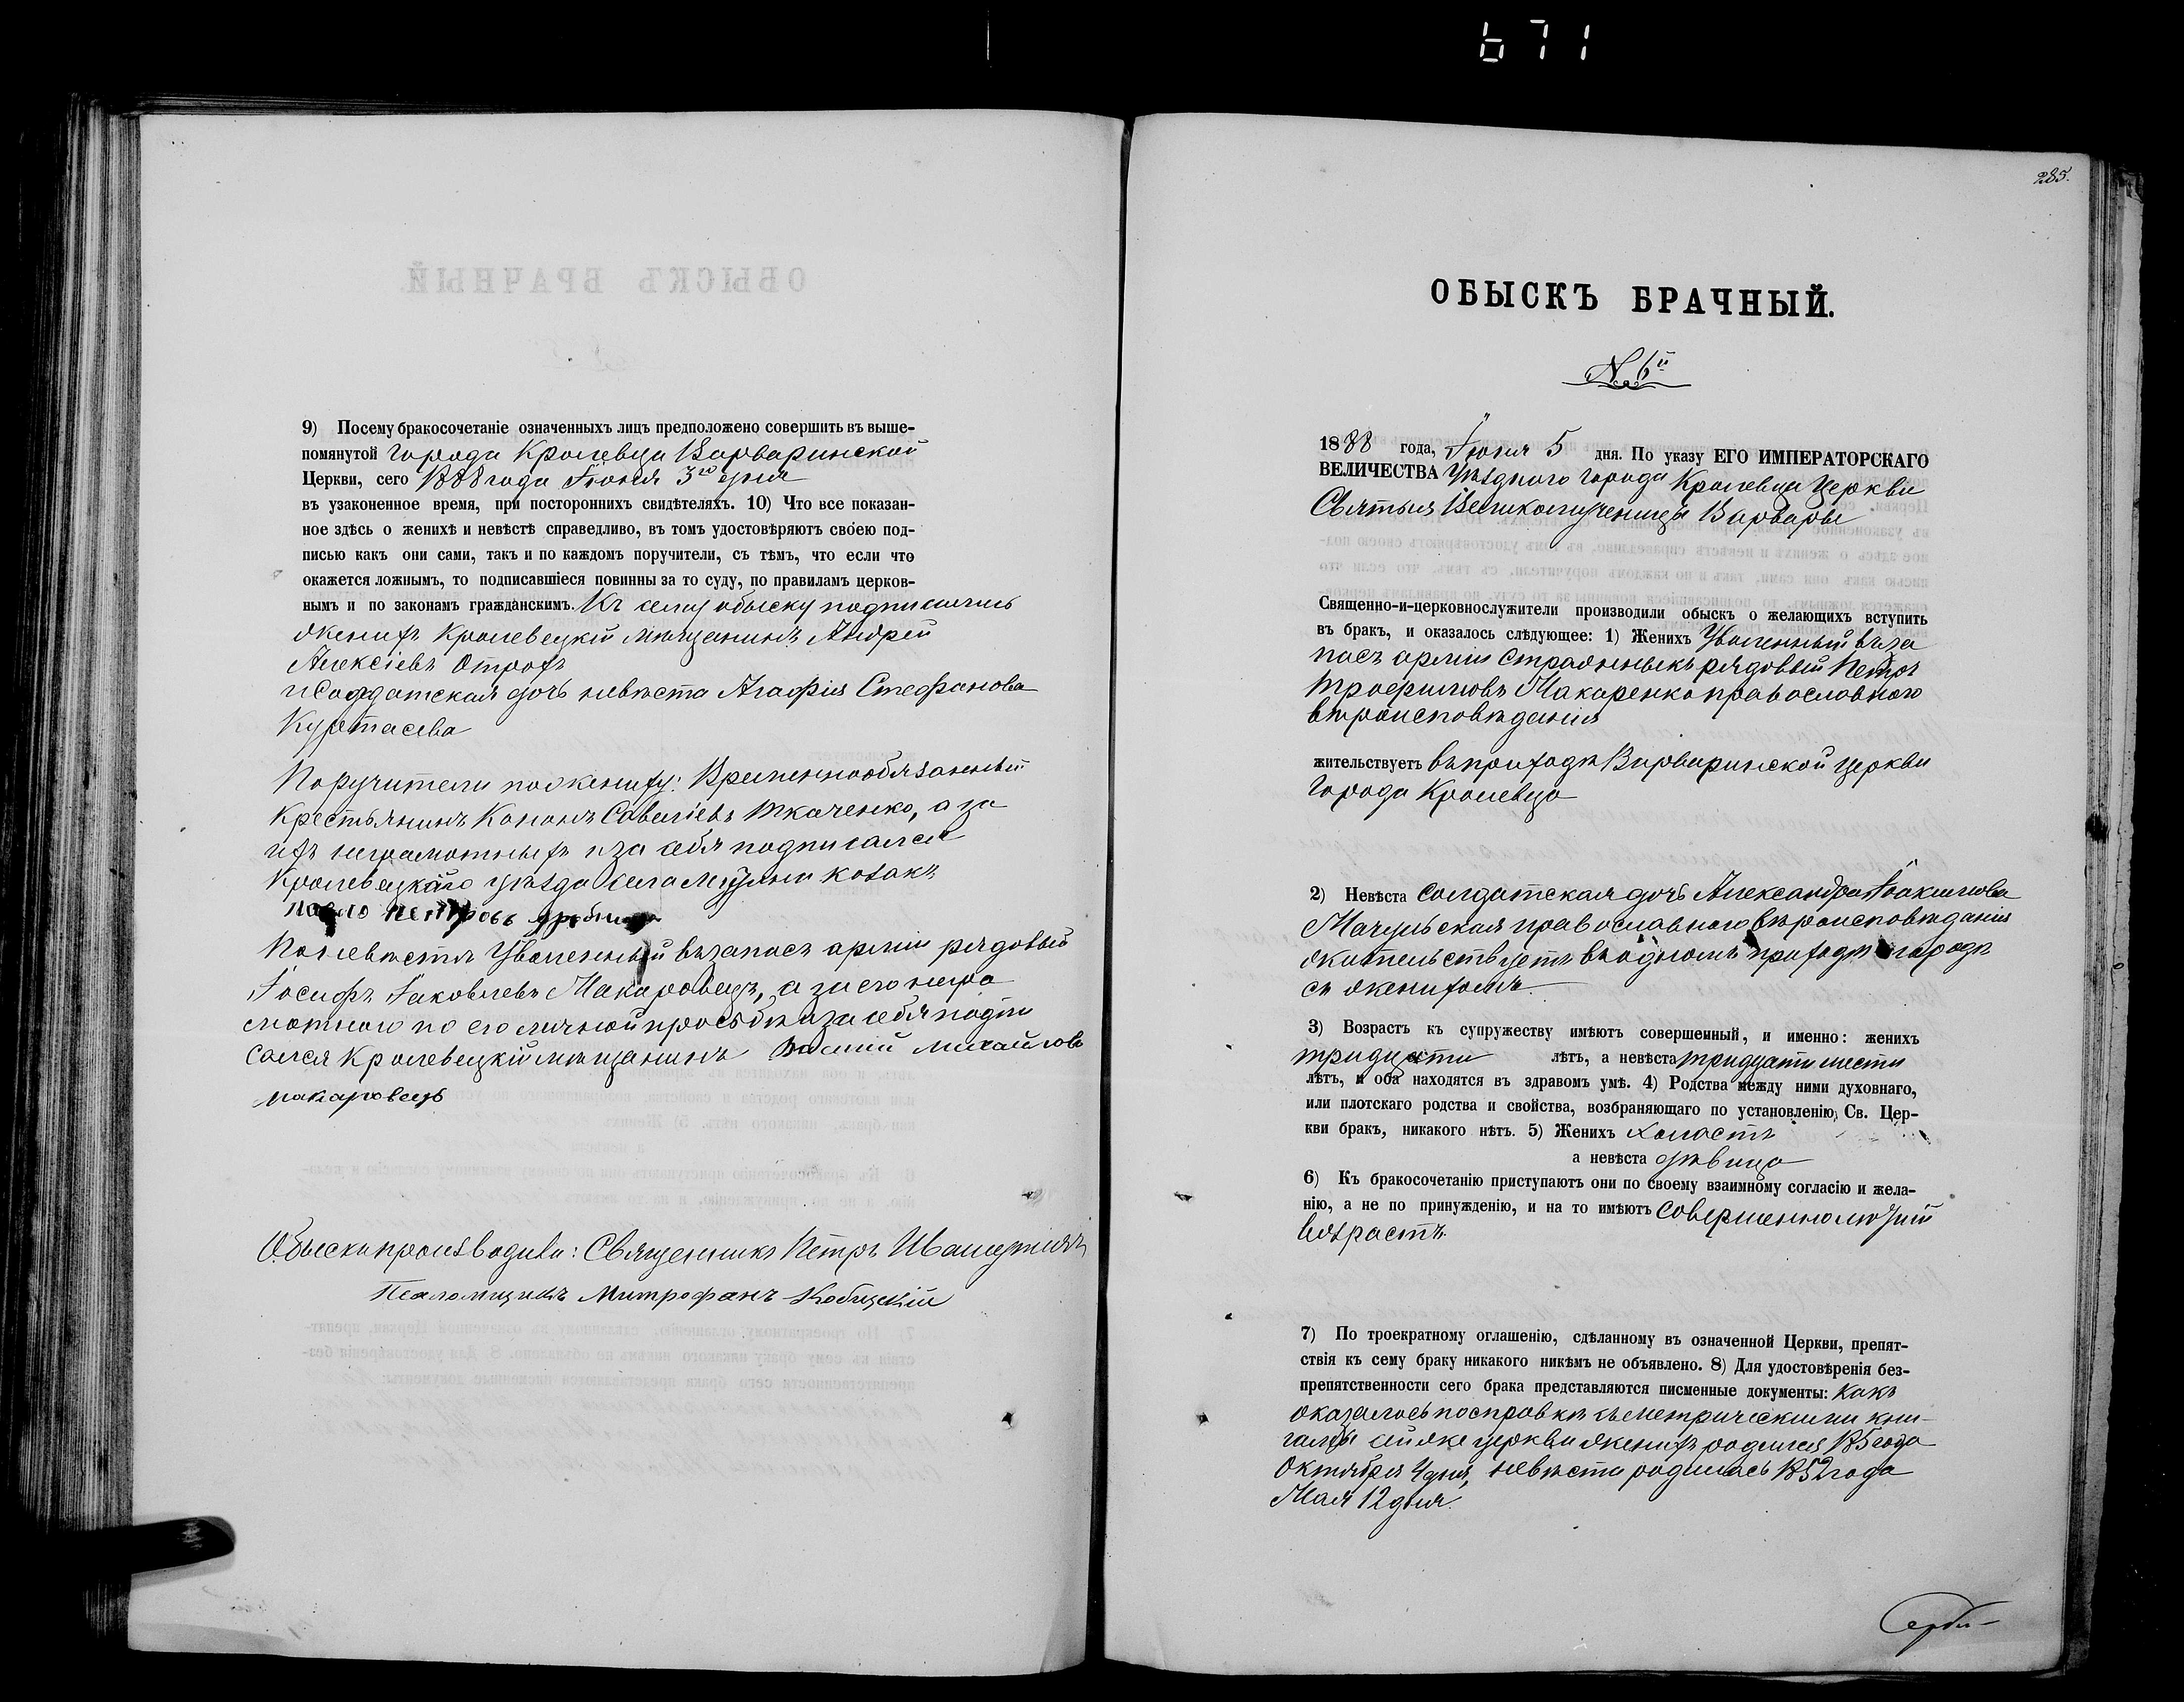 671
9) Посему бракосочетаніе означенныхъ лицъ предположено совершить въ выше-
помянутой города Кролевца Варваринской
Церкви, сего 1888 года Іюня 3го дня
въ узаконенное время, при постороннихъ свидѣтеляхъ. 10) Что все показан-
ное здѣсь о женихѣ и невѣстѣ справедливо, въ томъ удостовѣряютъ своею под-
писью какъ они сами, такъ и по каждомъ поручители, съ тѣмъ, что если что
окажется ложнымъ, то подписавшіеся повинны за то суду, по правиламъ церков-
нымъ и по законамъ гражданскимъ. Къ сему обыску подписались
женихъ Кролевецкій мѣщанинъ Андрей
Алексіевъ Отрохъ
и Солдатская дочь невѣста Агафія Стефанова
Куртасева
Поручители по жениху: Временнообязанный
Крестьянинъ Кононъ Савеліевъ Ткаченко, а за
ихъ неграмотныхъ и за себя подписался
Кролевецкаго уѣзда села козакъ
Петровъ
По невѣстѣ Уволенный въ запасъ арміи рядовый
Іосифъ Іаковлевъ Макаровецъ, а за его негра
мотного по его личной просьбѣ и за себя подпи
сался Кролевецкій мѣщанинъ михайловъ
макаровецъ
Обыскъ производили: Священникъ Петръ
Псаломщикъ Митрофанъ Кобицкій
285.
ОБЫСКЪ БРАЧНЫЙ.
N 6й
1888 года, Іюня 5 дня. По указу ЕГО ИМПЕРАТОРСКАГО
ВЕЛИЧЕСТВА Уѣздного города Кролевца Церкви
Святыя Великомученицы Варвары
Священно-и-церковнослужители производили обыскъ о желающихъ вступить
въ бракъ, и оказалось слѣдующее: 1) Женихъ Уволенный въ за
пасъ арміи рядовый Петръ
Трофимовъ Макаренко православного
вѣроисповѣданія
жительствуетъ въ приходѣ Варваринской церкви
города Кролевца
2) Невѣста солдатская дочь Александра Іоакимова
Мачульская православного вѣроисповѣданія
жительствуетъ въ одномъ приходѣ и городѣ
съ женихомъ
3) Возрастъ къ супружеству имѣютъ совершенный, и именно: женихъ
тридцати лѣтъ, а невѣста тридцати шести
лѣтъ, и оба находятся въ здравомъ умѣ. 4) Родства между ними духовнаго,
или плотскаго родства и свойства, возбраняющаго по установленію Св. Цер-
кви бракъ, никакого нѣтъ. 5) Женихъ холостъ
а невѣста дѣвица
6) Къ бракосочетанію приступаютъ они по своему взаимному согласію и жела-
нію, а не по принужденію, и на то имѣютъ совершеннолѣтній
возрастъ.
7) По троекратному оглашенію, сдѣланному въ означенной Церкви, препят-
ствія къ сему браку никакого никѣмъ не объявлено. 8) Для удостовѣренія без-
препятственности сего брака представляются писменные документы: какъ
оказалось по справкѣ съ метрическими кни-
гами сей же церкви женихъ родился 185 года
Октября 4 дня, невѣста родилась 1852 года
Мая 12 дня.